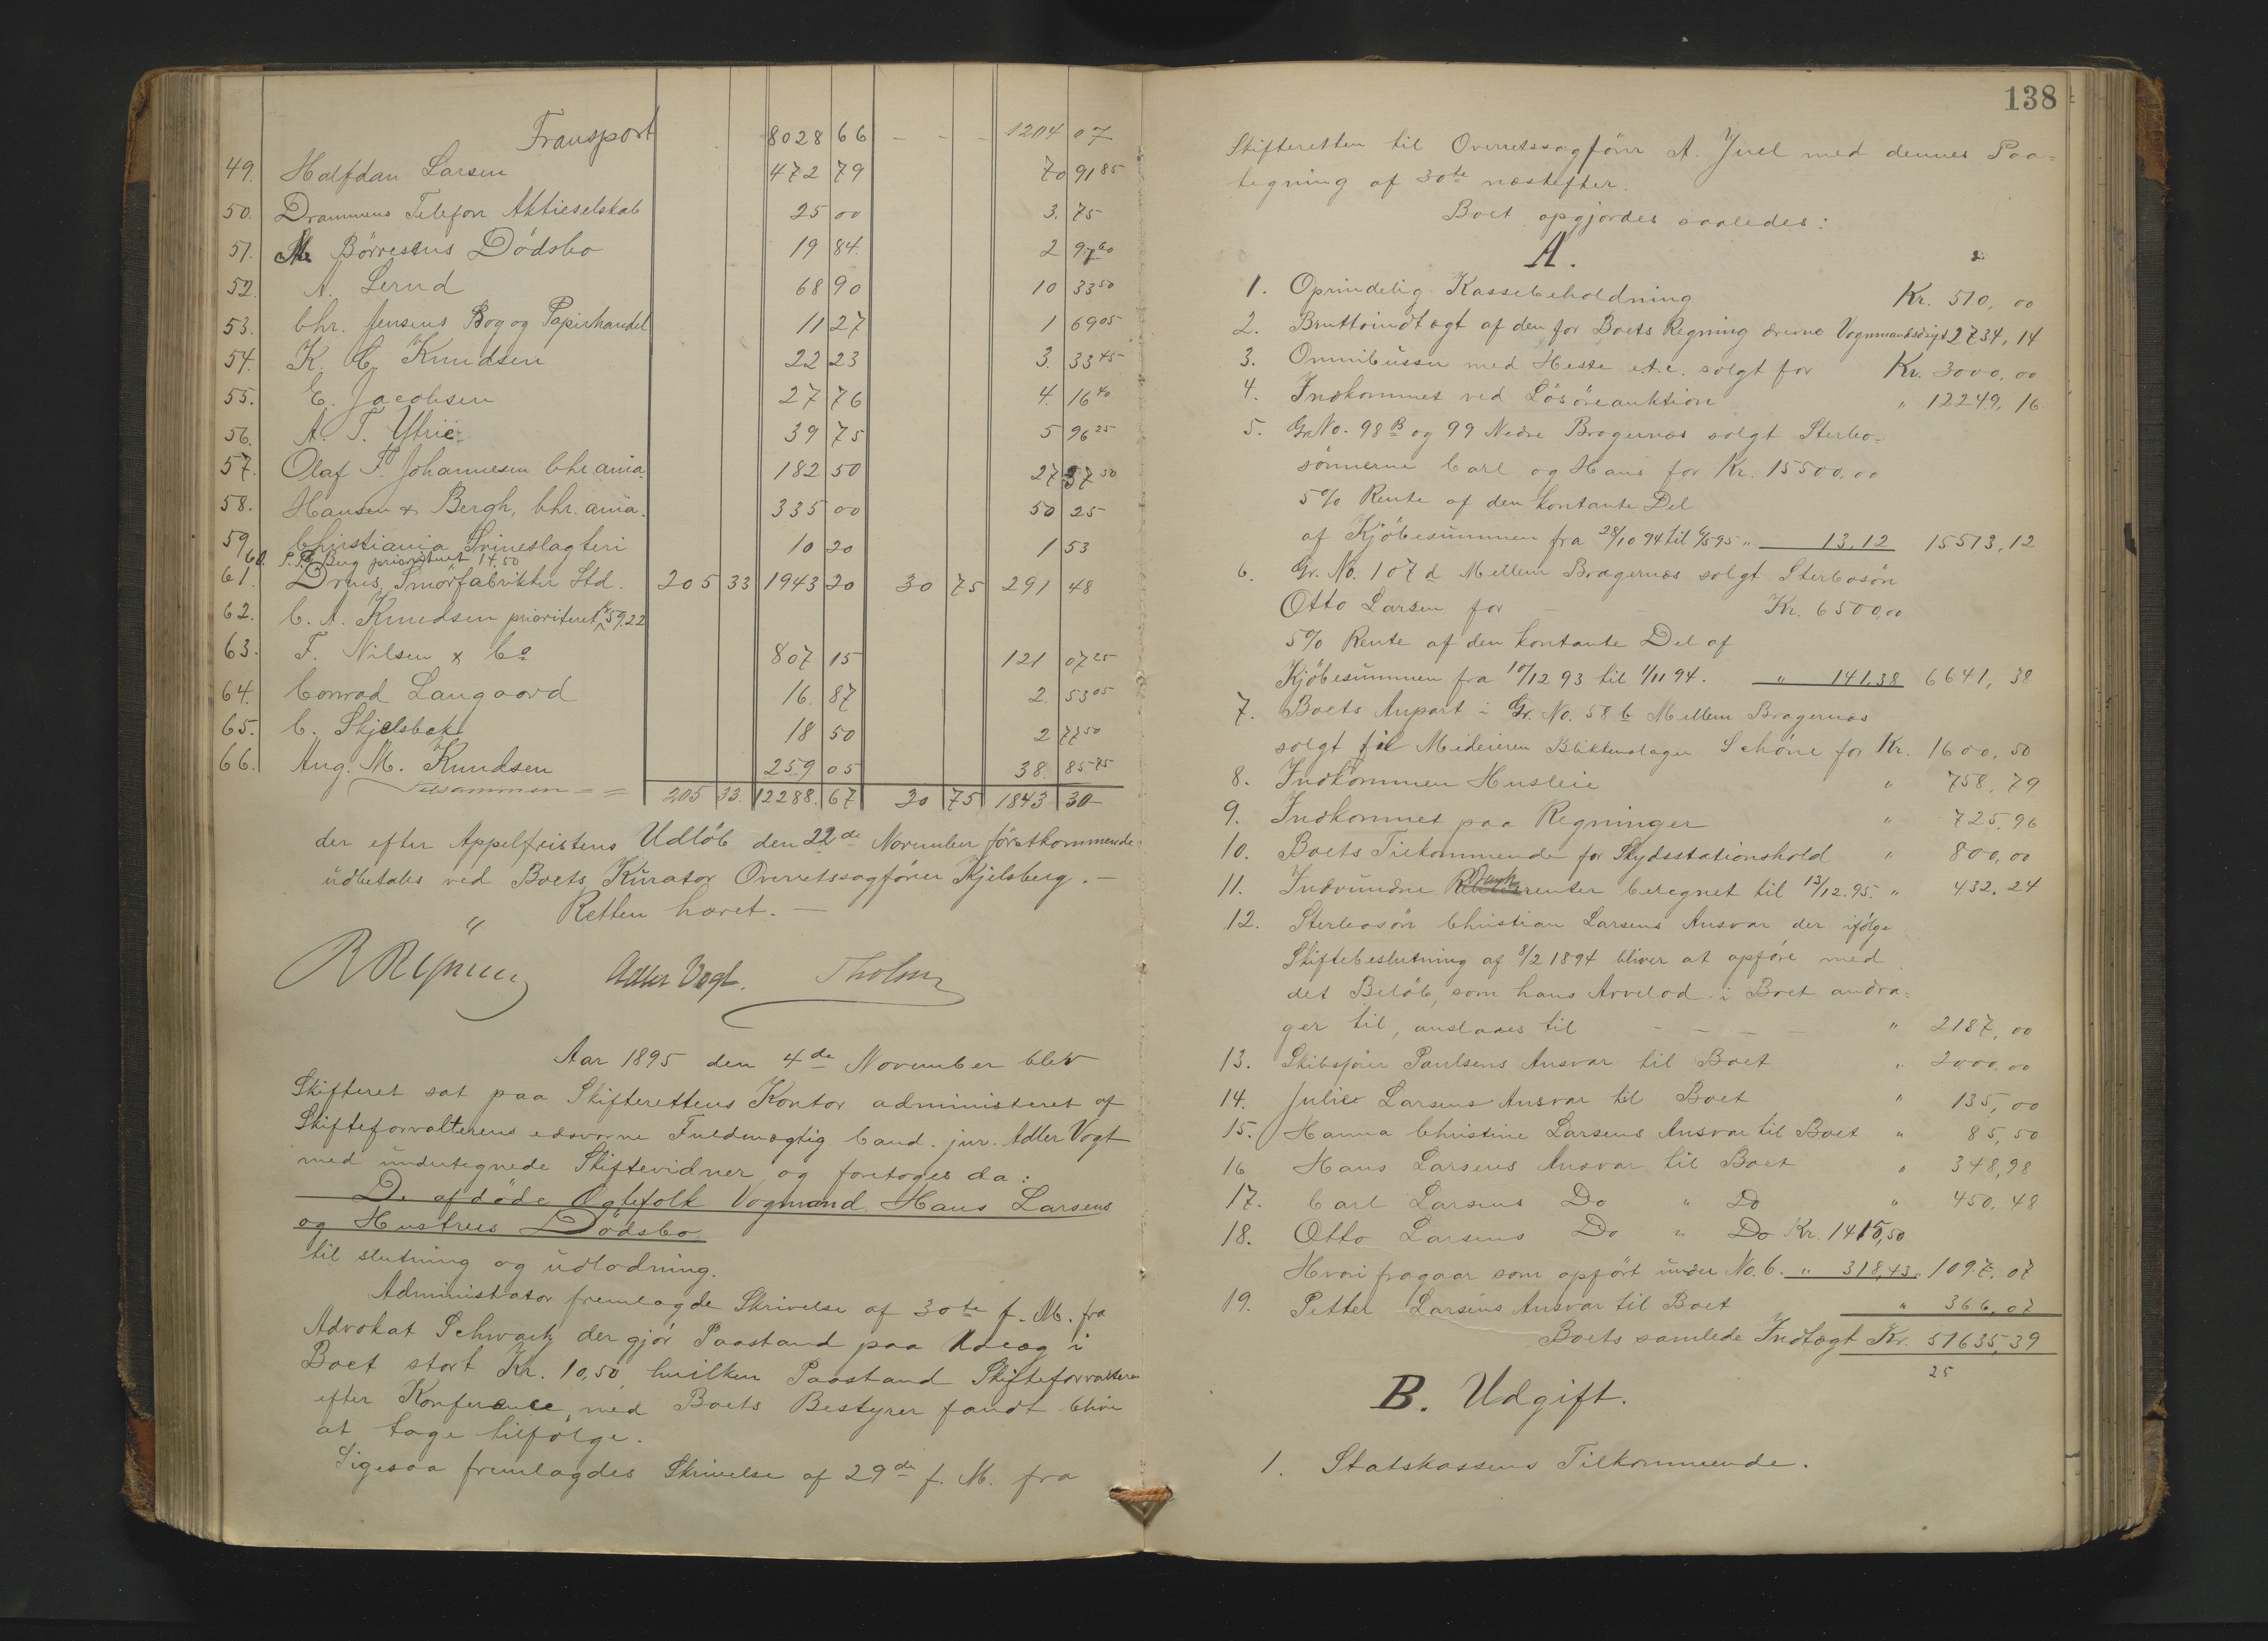 Transport 8028 66 - - - 1204 07
49. Halfdan Larsen 472 79 70 91 85
50. Drammens Telefon Aktieselskab 25 00 3. 75
51. M. Börresens Dödsbo 19 84. 2 97 60
52. A. Lerud 68 90 10 33 50
53. Chr. Jensens Bog og Papirhandel 11 27 1 69 05
54. K. C. Knudsen 22 23 3. 33 45
55. E. Jacobsen 27 76 4. 16 40
56. A. T. Ytrie 39 75 5 96 25
57. Olaf F. Johannesen Chr.ania. 182 50 27 37 50
58. Hansen & Bergh, Chr.ania. 335 00 50 25
59. Christiania Svineslagteri 10 20 1 53
60. Berg prioriteret 14,50
61. Drms Smörfabrikker Ltd. 205 33 1943 20 30 75 291 48
62. C. A. Knudsen prioriteret Kr 59.22
63. F. Nilsen & Co 807 15 121 07 25
64. Conrad Langaard 16. 87 2. 53 05
65. C. Skjelsbek 18 50 2 77 50
66. Aug. M. Knudsen 259 05 38. 85 75
Tilsammen = = 205 33. 12288. 67 30 75 1843 30
der efter Appelfristens Udlöb den 22de November förstkommende
udbetales ved Boets Kurator Overretssagförer Kjelsberg. -
" Retten hævet. -
Adler Vogt. Tholm
Aar 1895 den 4de November blev
Skifteret sat paa Skifterettens Kontor administeret af
Skifteforvalterens edsvorne Fuldmægtig Cand. jur. Adler Vogt
med undertegnede Skiftevidner og foretoges da:
De afdöde Ægtefolk Vogmand Hans Larsens
og Hustrues Dödsbo
til slutning og udlodning.
Administrator fremlagde Skrivelse af 30te f. M. fra
Advokat Schwartz der gjör Paastand paa Udlæg i
Boet stort Kr. 10,50, hvilken Paastand Skifteforvalteren
efter Konferance med Boets Bestyrer fandt blive
at tage tilfölge.
Ligesaa fremlagdes Skrivelse af 29de f. M. fra
138
Skifteretten til Overretssagförer A. Juel med dennes Paa=
tegning af 30te næstefter.
Boet opgjordes saaledes:
A.
1. Oprindelig Kassebeholdning Kr. 510, 00
2. Bruttoindtægt af den for Boets Regning drevne Vognmandsdrift 2734, 14
3. Omnibussen med Heste etc. solgt for Kr. 3000,00
4. Indkommet ved Lösöreauktion " 12249, 16
5. Gr No. 98 B og 99 Nedre Bragernæs solgt Sterbo=
sönnerne Carl og Hans for Kr. 15500,00
5% Rente af den kontante Del
af Kjöbesummen fra 28/10 94 til 6/5 95 " 13,12 15513,12
6. Gr. No. 107 d Mellem Bragernæs solgt Sterbosön
Otto Larsen for - - Kr. 6500,00
5% Rente af den kontante Del af
Kjöbesummen fra 10/12 93 til 1/11 94. " 141,38 6641, 38
7. Boets Anpart i Gr. No. 58 b Mellem Bragernæs
solgt til Medeieren Blikkenslager Schöne for Kr. 1600, 50
8. Indkommen Husleie " 758, 79
9. Indkommet paa Regninger " 725, 96
10. Boets Tilkommende for Skydsstationshold " 800,00
11. Indvundne Bankrenter beregnet til 13/12.95. " 432.24
12. Sterbosön Christian Larsens Ansvar der ifölge
Skiftebeslutning af 8/2 1894 bliver at opföre med
det Belöb, som hans Arvelod i Boet andra=
ger til, anslaaes til - - - - " 2187,00
13. Skibsförer Paulsens Ansvar til Boet " 2000,00
14. Julies Larsens Ansvar til Boet " 135,00
15. Hanna Christine Larsens Ansvar til Boet " 85,50
16 Hans Larsens Ansvar til Boet " 348,98
17. Carl Larsens Do " Do " 450,48
18. Otto Larsens Do " Do Kr. 1415,50
Hvori fragaar som opfört under No. 6. " 318,43 " 1097, 07
19. Petter Larsens Ansvar til Boet " 366,07
Boets samlede Indtægt Kr. 51635,39
25
B. Udgift.
1. Statskassens Tilkommende.